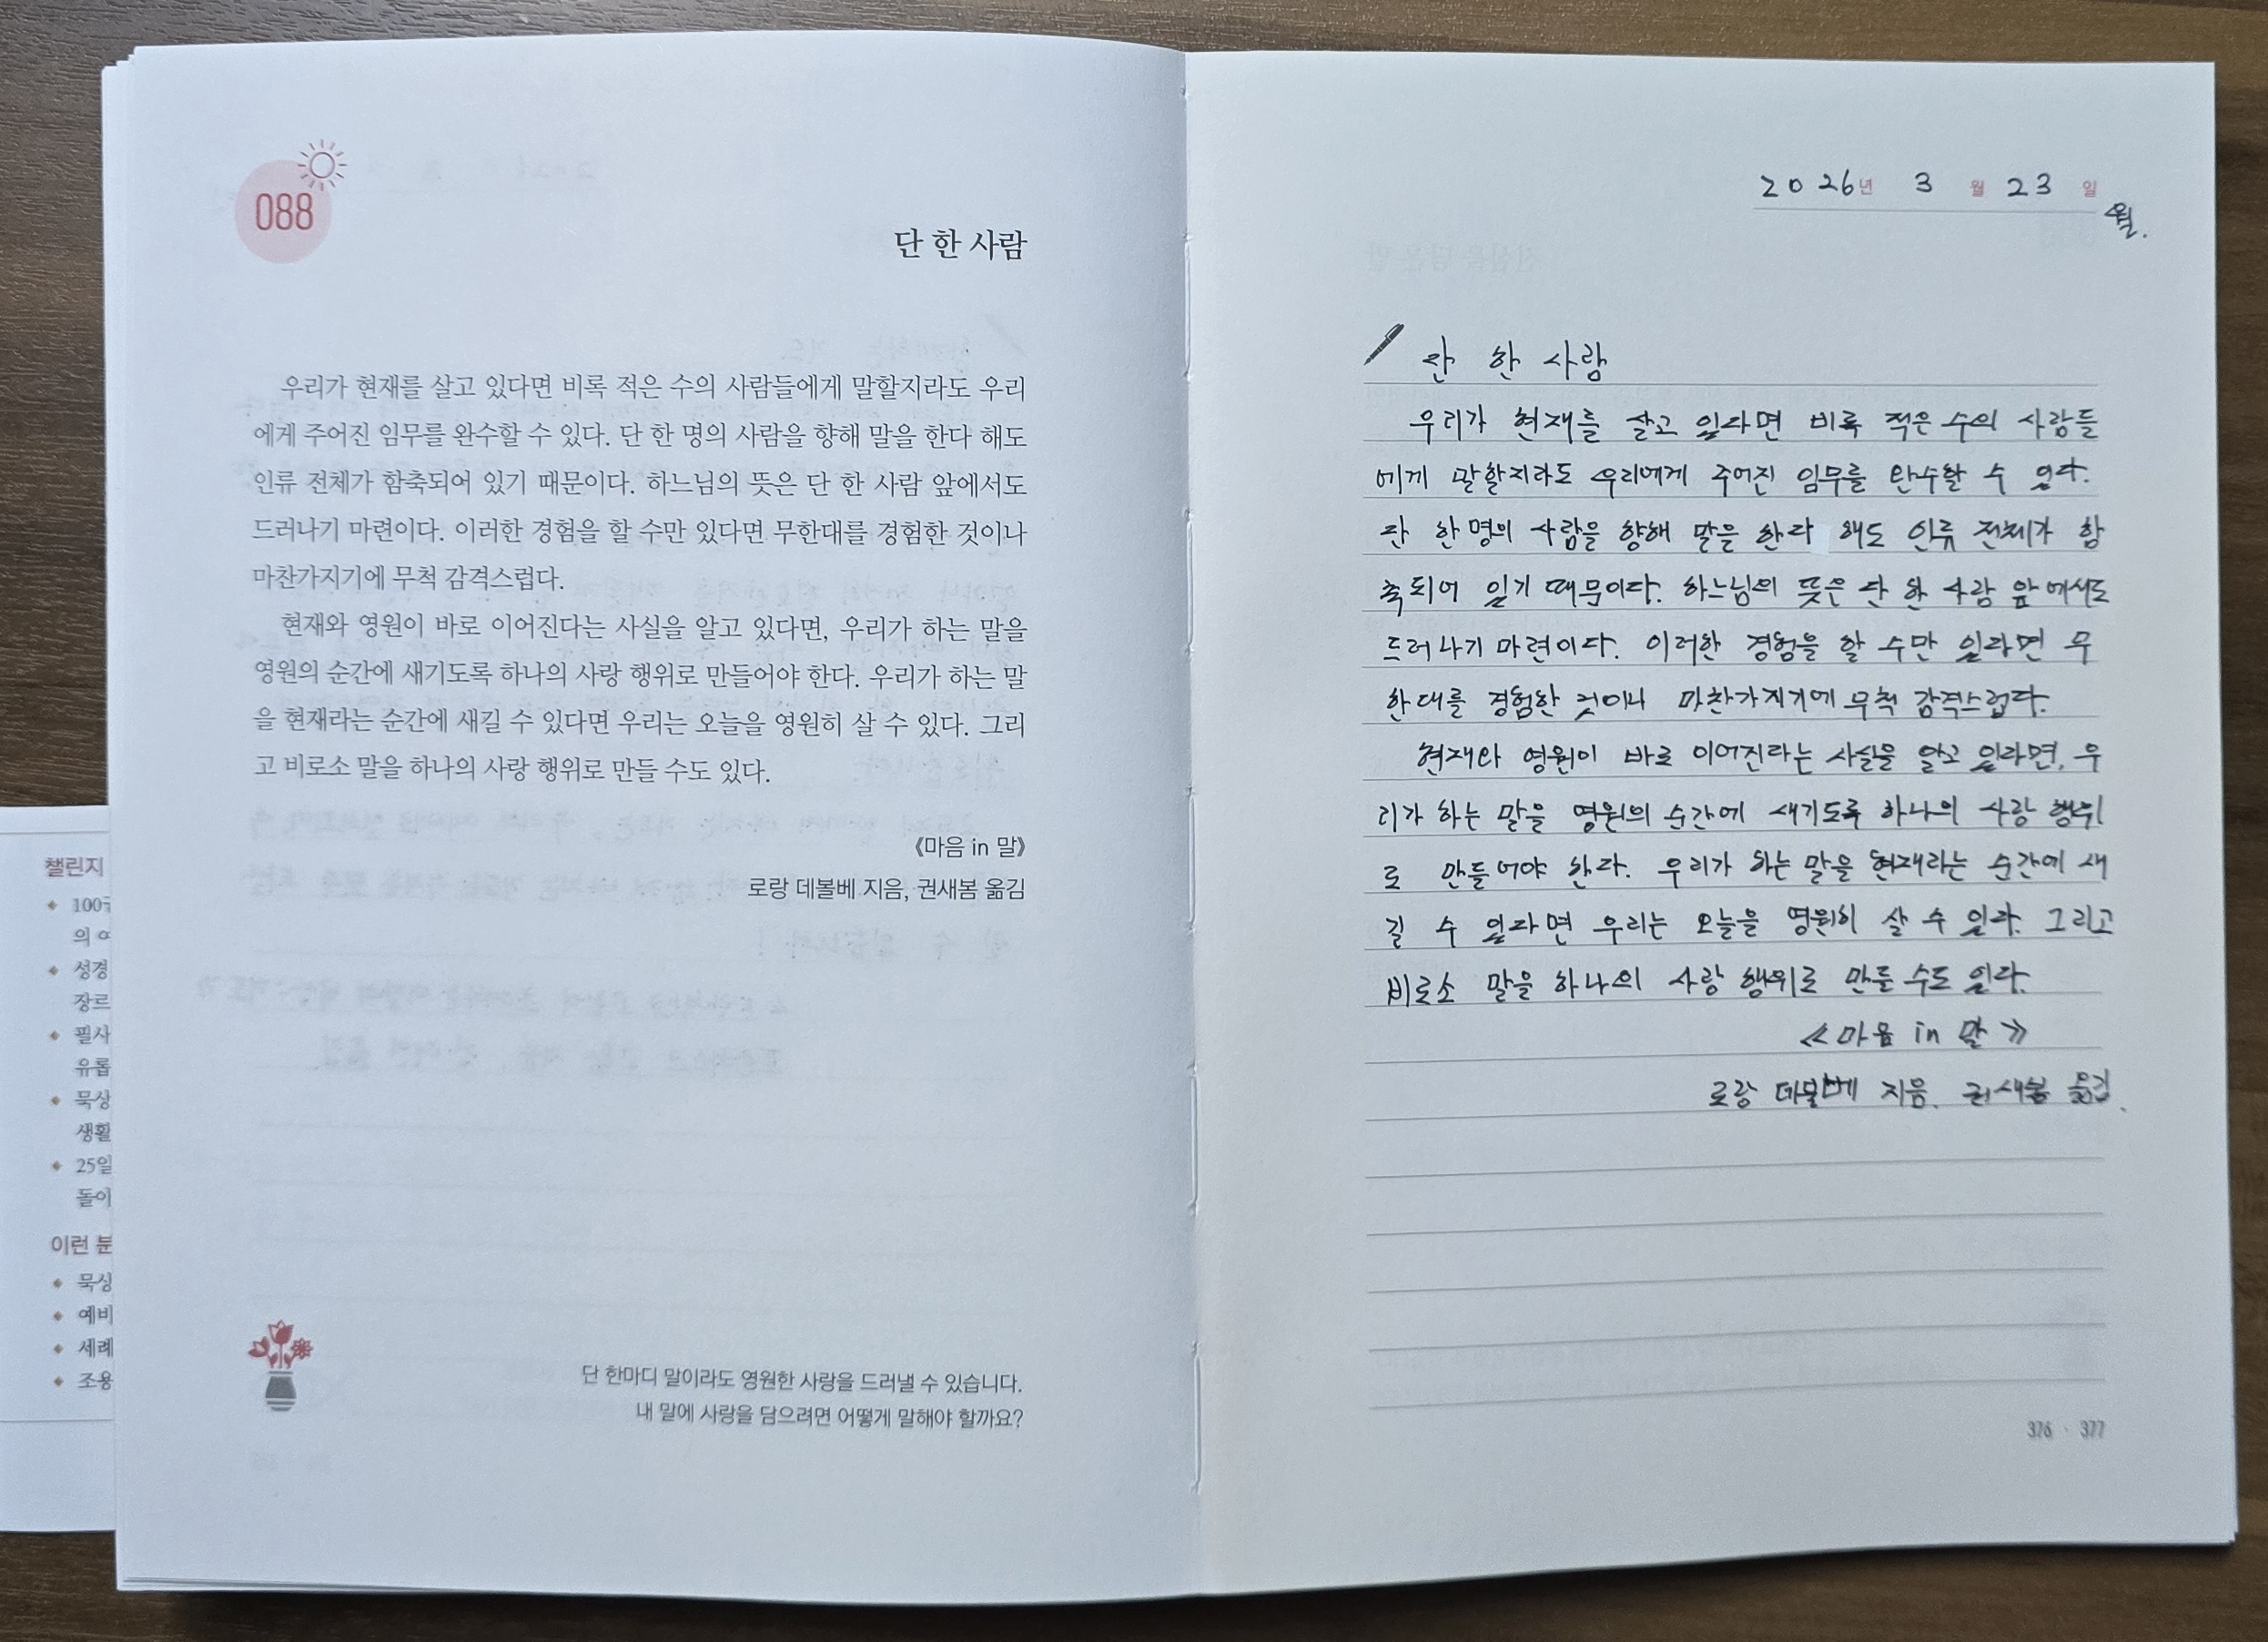 088
단 한 사람
우리가 현재를 살고 있다면 비록 적은 수의 사람들에게 말할지라도 우리
에게 주어진 임무를 완수할 수 있다. 단 한 명의 사람을 향해 말을 한다 해도
인류 전체가 함축되어 있기 때문이다. 하느님의 뜻은 단 한 사람 앞에서도
드러나기 마련이다. 이러한 경험을 할 수만 있다면 무한대를 경험한 것이나
마찬가지기에 무척 감격스럽다.
현재와 영원이 바로 이어진다는 사실을 알고 있다면, 우리가 하는 말을
영원의 순간에 새기도록 하나의 사랑 행위로 만들어야 한다. 우리가 하는 말
을 현재라는 순간에 새길 수 있다면 우리는 오늘을 영원히 살 수 있다. 그리
고 비로소 말을 하나의 사랑 행위로 만들 수도 있다.
《마음 in 말》
로랑 데볼베 지음, 권새봄 옮김
단 한마디 말이라도 영원한 사랑을 드러낼 수 있습니다.
내 말에 사랑을 담으려면 어떻게 말해야 할까요?
챌린지
100
의
성경
장르
필사
유롭
묵상
생활
25일
돌이
이런 분
묵상
예비
세례
조용
2026년 3 월 23 일
월.
단 한 사람
우리가 현재를 살고 있다면 비록 적은 수의 사람들
에게 말할지라도 우리에게 주어진 임무를 완수할 수 있다.
단 한 명의 사람을 향해 말을 한다 해도 인류 전체가 함
축되어 있기 때문이다. 하느님의 뜻은 단 한 사람 앞에서도
드러나기 마련이다. 이러한 경험을 할 수만 있다면 무
한대를 경험한 것이나 마찬가지기에 무척 감격스럽다.
현재와 영원이 바로 이어진다는 사실을 알고 있다면, 우
리가 하는 말을 영원의 순간에 새기도록 하나의 사랑 행위
로 만들어야 한다. 우리가 하는 말을 현재라는 순간에 새
길 수 있다면 우리는 오늘을 영원히 살 수 있다. 그리고
비로소 말을 하나의 사랑 행위로 만들 수도 있다.
《마음 in 말》
로랑 데볼베 지음, 권새봄 옮김.
376 · 377